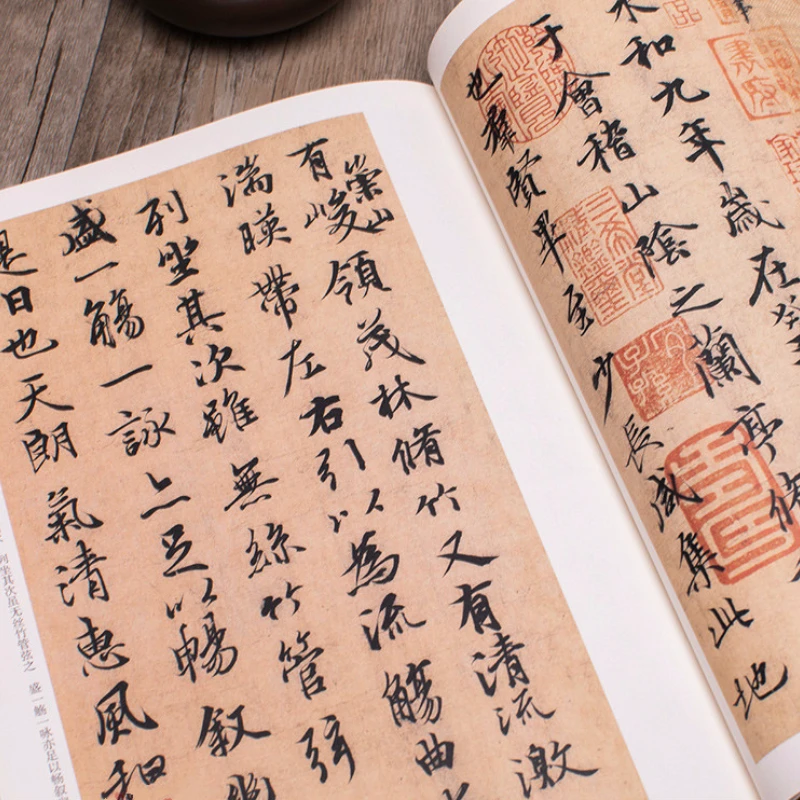 永和九年歲在癸
于會稽山陰之蘭亭脩
也羣賢畢至少長咸集此地
有崇山峻領茂林脩竹又有清流激
湍暎帶左右引以為流觴曲
列坐其次雖無絲竹管弦
盛一觴一詠亦足以暢敘幽
是日也天朗氣清惠風和
列坐其次虽无丝竹管弦之 盛一觞一咏亦足以畅叙